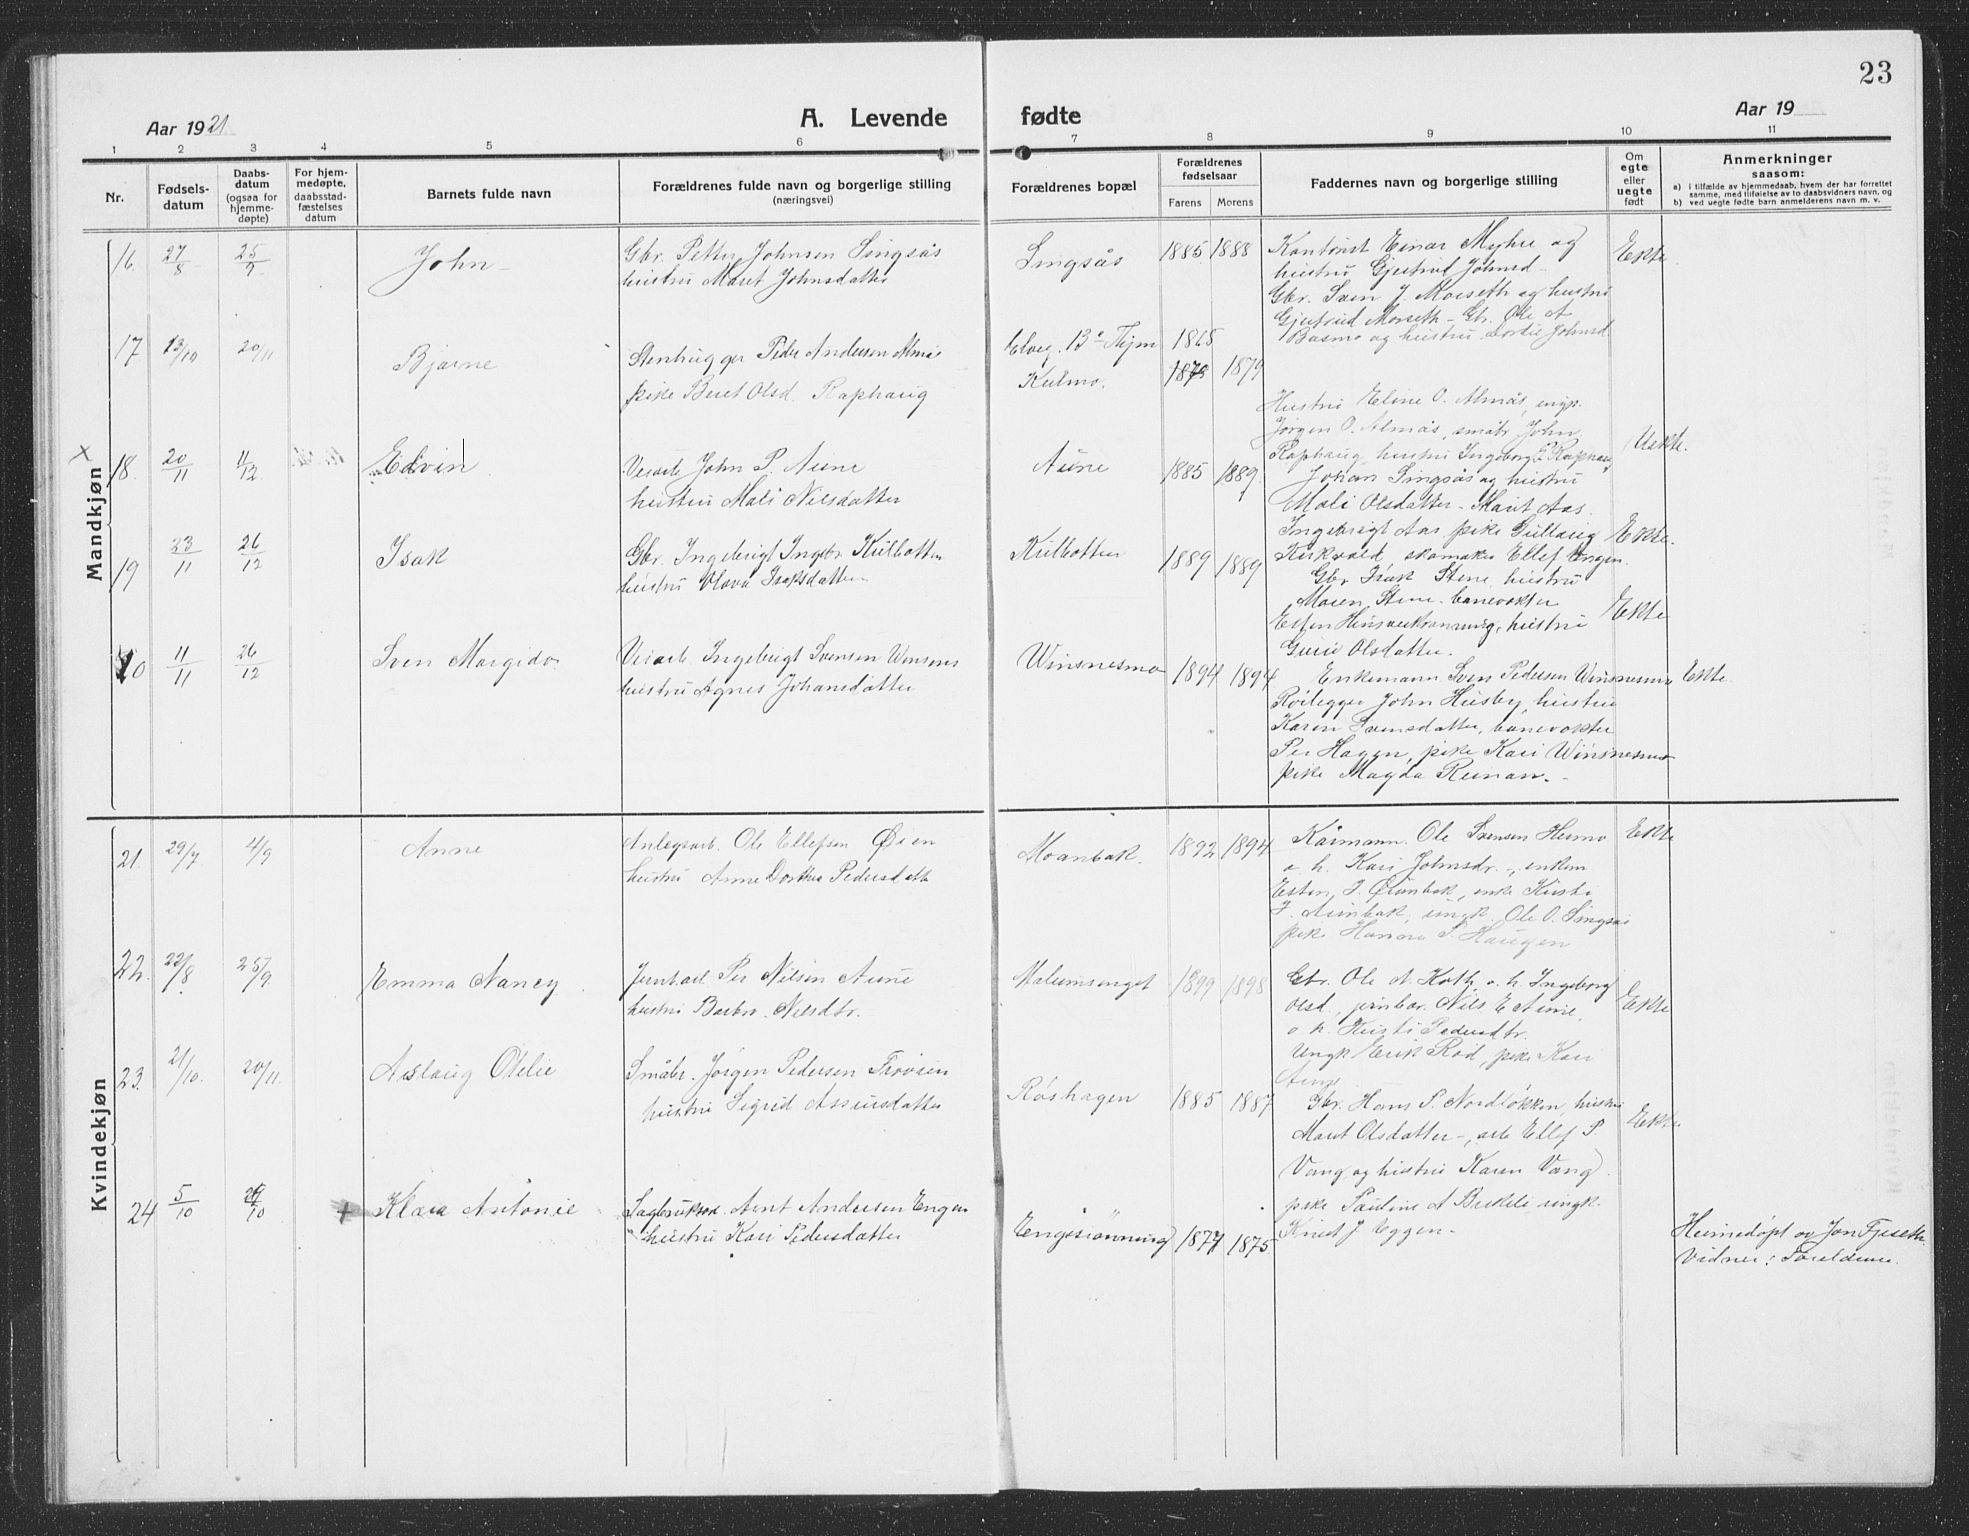 23
Aar 1921
A. Levende
fødte
Aar 19
1 2 3 4 5 6 7 8 9 10 11
Nr.
Fødsels-
datum
Daabs-
datum
(ogsaa for
hjemme-
døpte)
For hjem-
medøpte,
daabsstad-
fæstelses
datum
Barnets fulde navn
Forældrenes fulde navn og borgerlige stilling
(næringsvei)
Forældrenes bopæl
Forældrenes
fødselsaar
Farens Morens
Faddernes navn og borgerlige stilling
Om
egte
eller
uegte
født
Anmerkninger
saasom:
a) i tilfælde av hjemmedaab, hvem der har forrettet
samme, med tilføielse av to daabsvidners navn, og
b) ved uegte fødte barn anmelderens navn m. v.
Mandkjøn
16. 27/8 25/9 John
Gbr. Petter Johnsen Singsås
hustru Marit Johnsdatter
Singsås 1885 1888
Kantonist Einar Myhre og
hustru Gjertrud Johnsd.
Gbr. Sven J. Morseth og hustru
Gjertrud Morseth - Gbr. Ole A
Basmo og hustru Dordie Johnsd
Ekte.
17 13/10 20/11 Bjarne
Stenhugger Peder Andersen Almås
pike Beret Olsd. Raphaug
Kulmo. 1865
1879
Hustru Eline O. Almås, ungk.
Jørgen O. Almås, småbr John
Raphaug hustru Ingeborg E Raphaug
Uekte.
18. 20/11 11/12 Edvin
Veiarb John P. Aune
hustru Mali Nilsdatter
Aune 1885 1889
Johan Singsås og hustru
Mali Olsdatter - Marit Aas.
Ingebrigt Aas pike Gullaug
Kirkvold, skomaker Ellef Engen.
Ekte.
19 23/11 26/12 Isak
Gbr. Ingebrigt Ingebr. Kulbotten
hustru Olava Isaksdatter
Kulbotten 1889 1889
Gbr Isak Stene, hustru
Maren Stene. banevokter
Esten hustru
Guru Olsdatter.
Ekte
20 11/11 26/12 Sven Margido
Veiarb Ingebrigt Svensen Winsnes
hustru Agnes Johansdatter
Winsnesmo 1894 1894
Enkemann Sven Pedersen Winsnesmo
Rørlegger John Husby, hustru
Karen Svensdatter, banevokter
Per Hagen, pike Kari Winsnesmo
pike Magda Reinan.
Ekte.
Kvindekjøn
21. 29/7 4/9 Anne
Anlegsarb. Ole Ellefsen Øien
hustru Anne Dorthea Pedersdatt
Moanbak. 1892 1894
Kårmann. Ole Svensen Hermo
o. h. Kari Johnsdr., enkem
Esten J. enke Kirsti
J. Aunbak, ungk. Ole O. Singsås
pike Hanna P. Haugen
Ekte
22. 22/8 25/9 Emma Nancy
Jernbarb Per Nilsen Aune
hustru Barbro Nilsdtr.
1899 1898
Gbr. Ole A. Koth o. h. Ingeborg
Olsd., jernbar. Nils E Aune,
o h. Kirsti Pedersdtr.
Ungk Erik Rød, pike Kari
Aune
Ekte
23. 21/10. 20/11. Aslaug Otelie
Småbr. Jørgen Pedersen Frøsen
hustru Sigrid Assersdatter
Røshagen 1885 1887
Gbr. Hans P. Nordløkken, hustru
Marit Olsdatter -, arb Ellef P.
Vang og hustru Karen Vang.
pike Pauline A ungk.
Knut J Eggen -
Ekte
24 5/10 + Klara Antonie
Arnt Andersen Engen
hustru Kari Pedersdatter
1877 1875
Heimedøpt av Jon Fjeseth.
Vidner: Foreldrene.